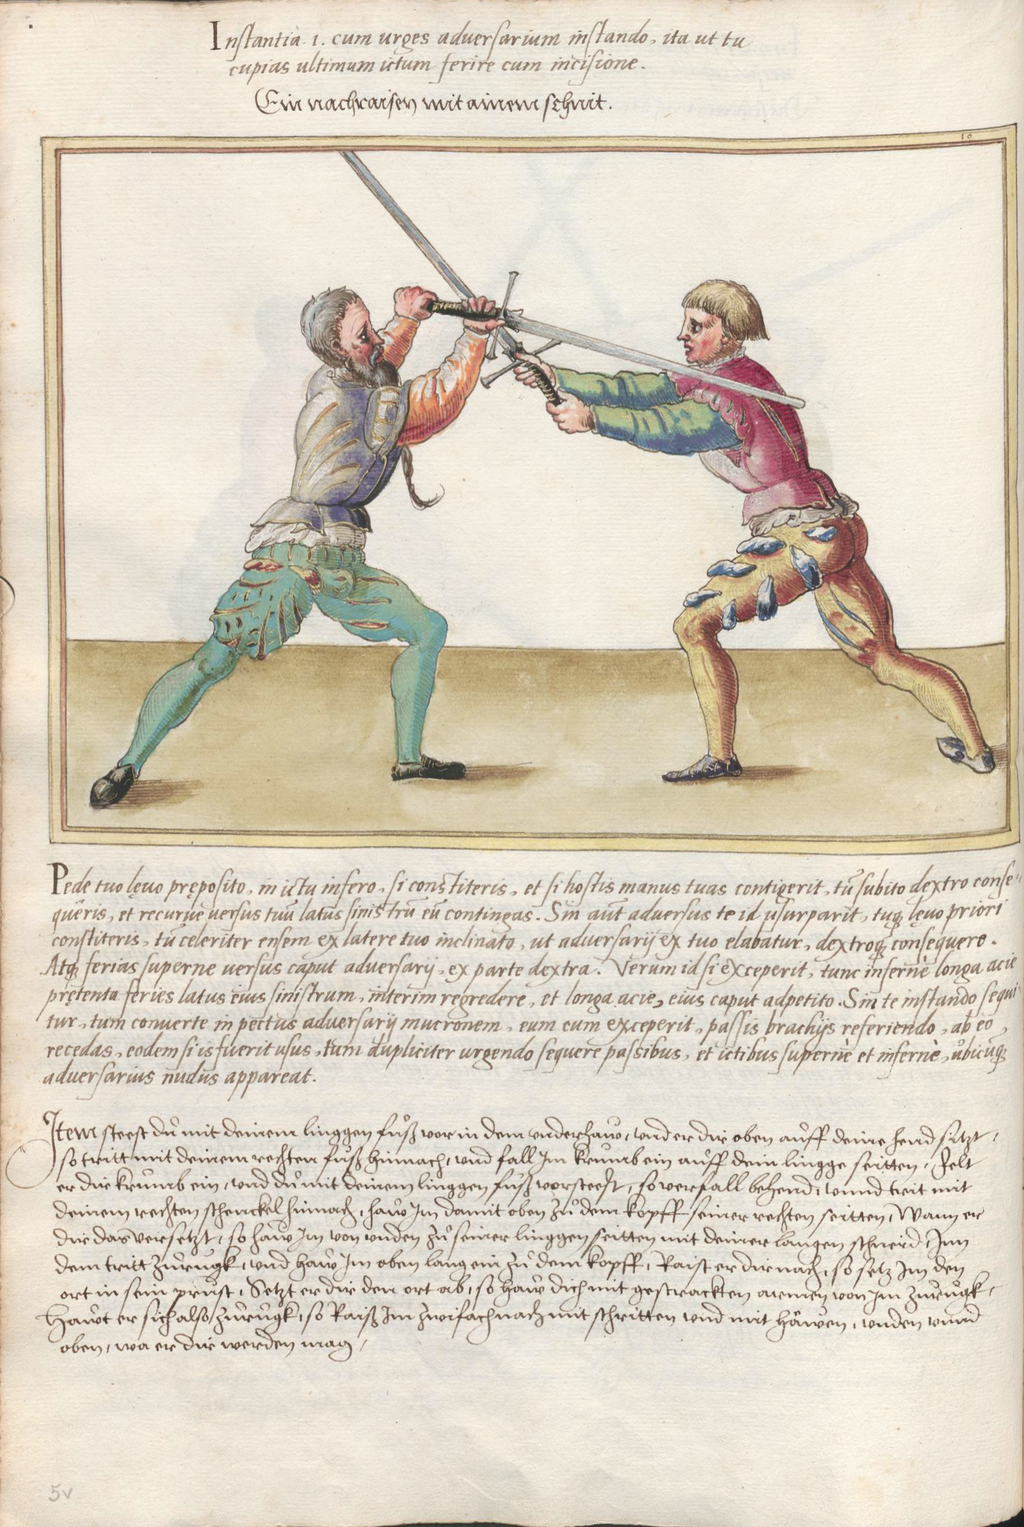 Instantia 1. cum urges adversarium instando, ita ut tu
cupias ultimum ictum ferire cum incisione.
Ein nachraisen mit ainem schnit.
10
Pede tuo lęvo pręposito, in ictu infero, si constiteris, et si hostis manus tuas contigerit, tũ subito dextro conse=
quêris, et recurvè versus tuũ latus sinistrũ eũ contingas. Sin aũt adversus te id usurparit, tuq; lęvo priori
constiteris, tũ celeriter ensem ex latere tuo inclinato, ut adversarij ex tuo elabatur, dextroq; consequere.
Atq; ferias superne versus caput adversarij, ex parte dextra. Verum id si exceperit, tunc infernè longa acie
prętenta feries latus eius sinistrum, interim regredere, et longa acie, eius caput adpetito. Sin te instando sequi
tur, tum converte in pectus adversarij mucronem, eum cum exceperit, passis brachijs referiendo, ab eo
recedas, eodem si is fuerit usus, tum dupliciter urgendo sequere passibus, et ictibus supernè et infernè, ubicũq;
adversarius nudus appareat.
Item steest dũ mit deinem linggen fũß vor in dem underhaw, und er dir oben aũff deine hend felt,
so tritt mit deinem rechten fũß hinnach, und fall Im krũmb ein aũff dein lingge seitten, Felt
er dir krũmb ein, und dũ mit deinem linggen fũß vorsteest, so verfall behend, unnd trit mit
deinem rechten schenckel hinnach, haw Im damit oben zũ dem kopff seiner rechten seitten, Wann er
dir das versetzt, so haw Im von unden zũ seiner linggen seitten mit deiner langen schneid, Inn
dem tritt zũrugk, und haw Im oben lang ein zũ dem kopff, Raist er dir nach, so setz Im den
ort in sein prũst, Setzt er dir den ort ab, so haw dich mit gestrackten armen von Im zũrũgk,
Hawt er sich also zũrũgk, so Raiß Im zwifach nach mit schritten und mit häwen, unden unnd
oben, wa er dir werden mag,
5v